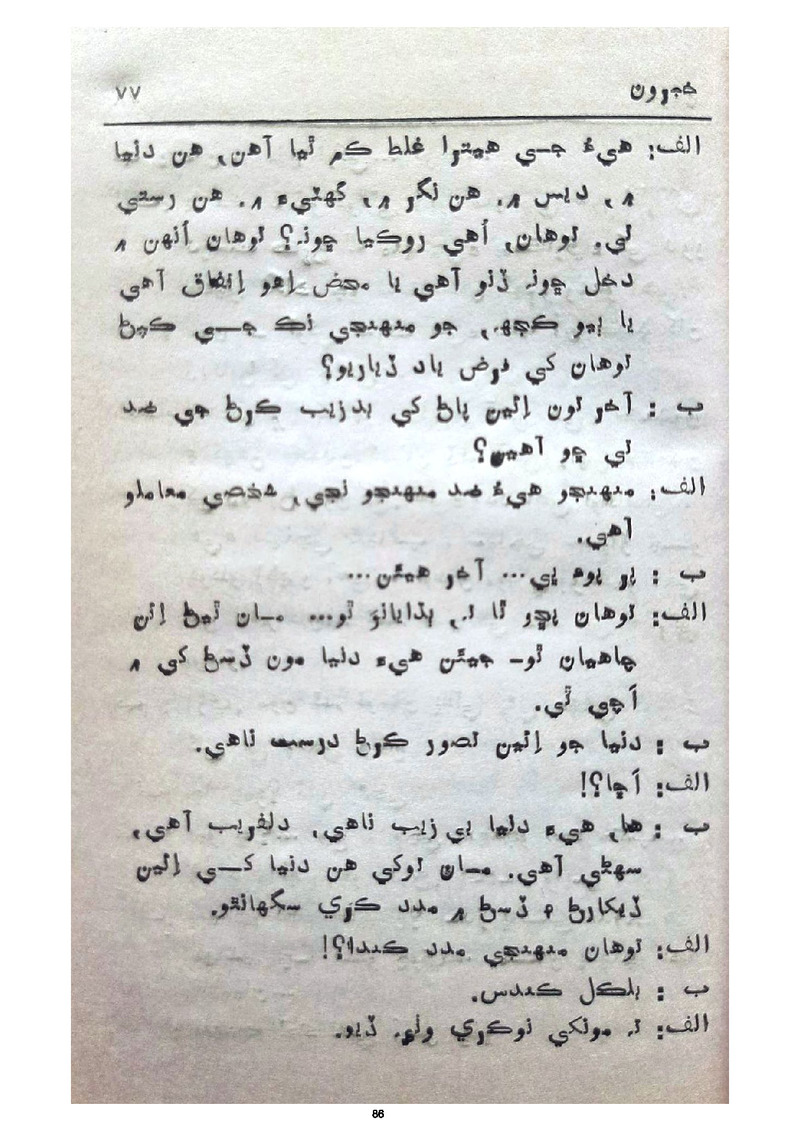 خبرون ۷۷
الف: هيءُ جسي هيترا غلط ڪم ٿيا آهن، هن دنيا
۾، ديس ۾. هن نگر ۾، گهٽيءَ ۾. هن رستي
تي. توهان، اُهي روڪيا ڇونہ؟ توهان اُنهن ۾
دخل ڇونہ ڏنو آهي يا محض اِهو اِتفاق آهي
يا ٻيو ڪجهہ، جو منهنجي نڪ جسي ڪپڻ
توهان کي فرض ياد ڏياريو؟
ب : آخر تون اِئين پاڻ کي بدزيب ڪرڻ جي ضد
تي ڇو آهين؟
الف: منهنجو هيءُ ضد منهنجو نجي، شخصي معاملو
آهي.
ب : پر پوءِ بي... آخر هيئن...
الف: توهان پڇو ٿا تہ، ٻڌايانوَ ٿو... مـان ٿيڻ اِئن
چاهيان ٿو- جيئن هيءَ دنيا مون ڏسڻ کي ۾
اَچي ٿي.
ب : دنيا جو اِئين تصور ڪرڻ درست ناهي.
الف: اَڇا؟!
ب : ها، هيءَ دنيا بي زيب ناهي، دلفريب آهي،
سهڻي آهي. مـان توکي هن دنيا کـي اِئين
ڏيکارڻ ۽ ڏسڻ ۾ مدد ڪري سگهانٿو.
الف: توهان منهنجي مدد ڪندا؟!
ب : بلڪل ڪندس.
الف: تہ مونکي نوڪري وٺي ڏيو.
86